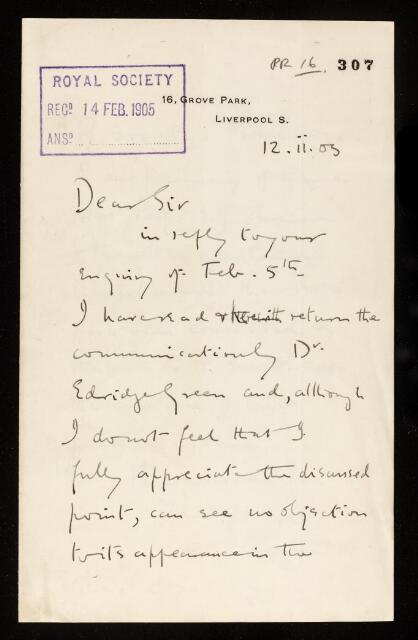 PR 16. 307
ROYAL SOCIETY
RECD. 14 FEB. 1905
ANSD.
16, GROVE PARK,
LIVERPOOL S.
12.ii.05
Dear Sir
in reply to your
enquiry of Feb. 5th
I have read & herewith return the
communication by Dr.
Edridge Green and, although
I do not feel that I
fully appreciate the discussed
point, can see no objection
to its appearance in the